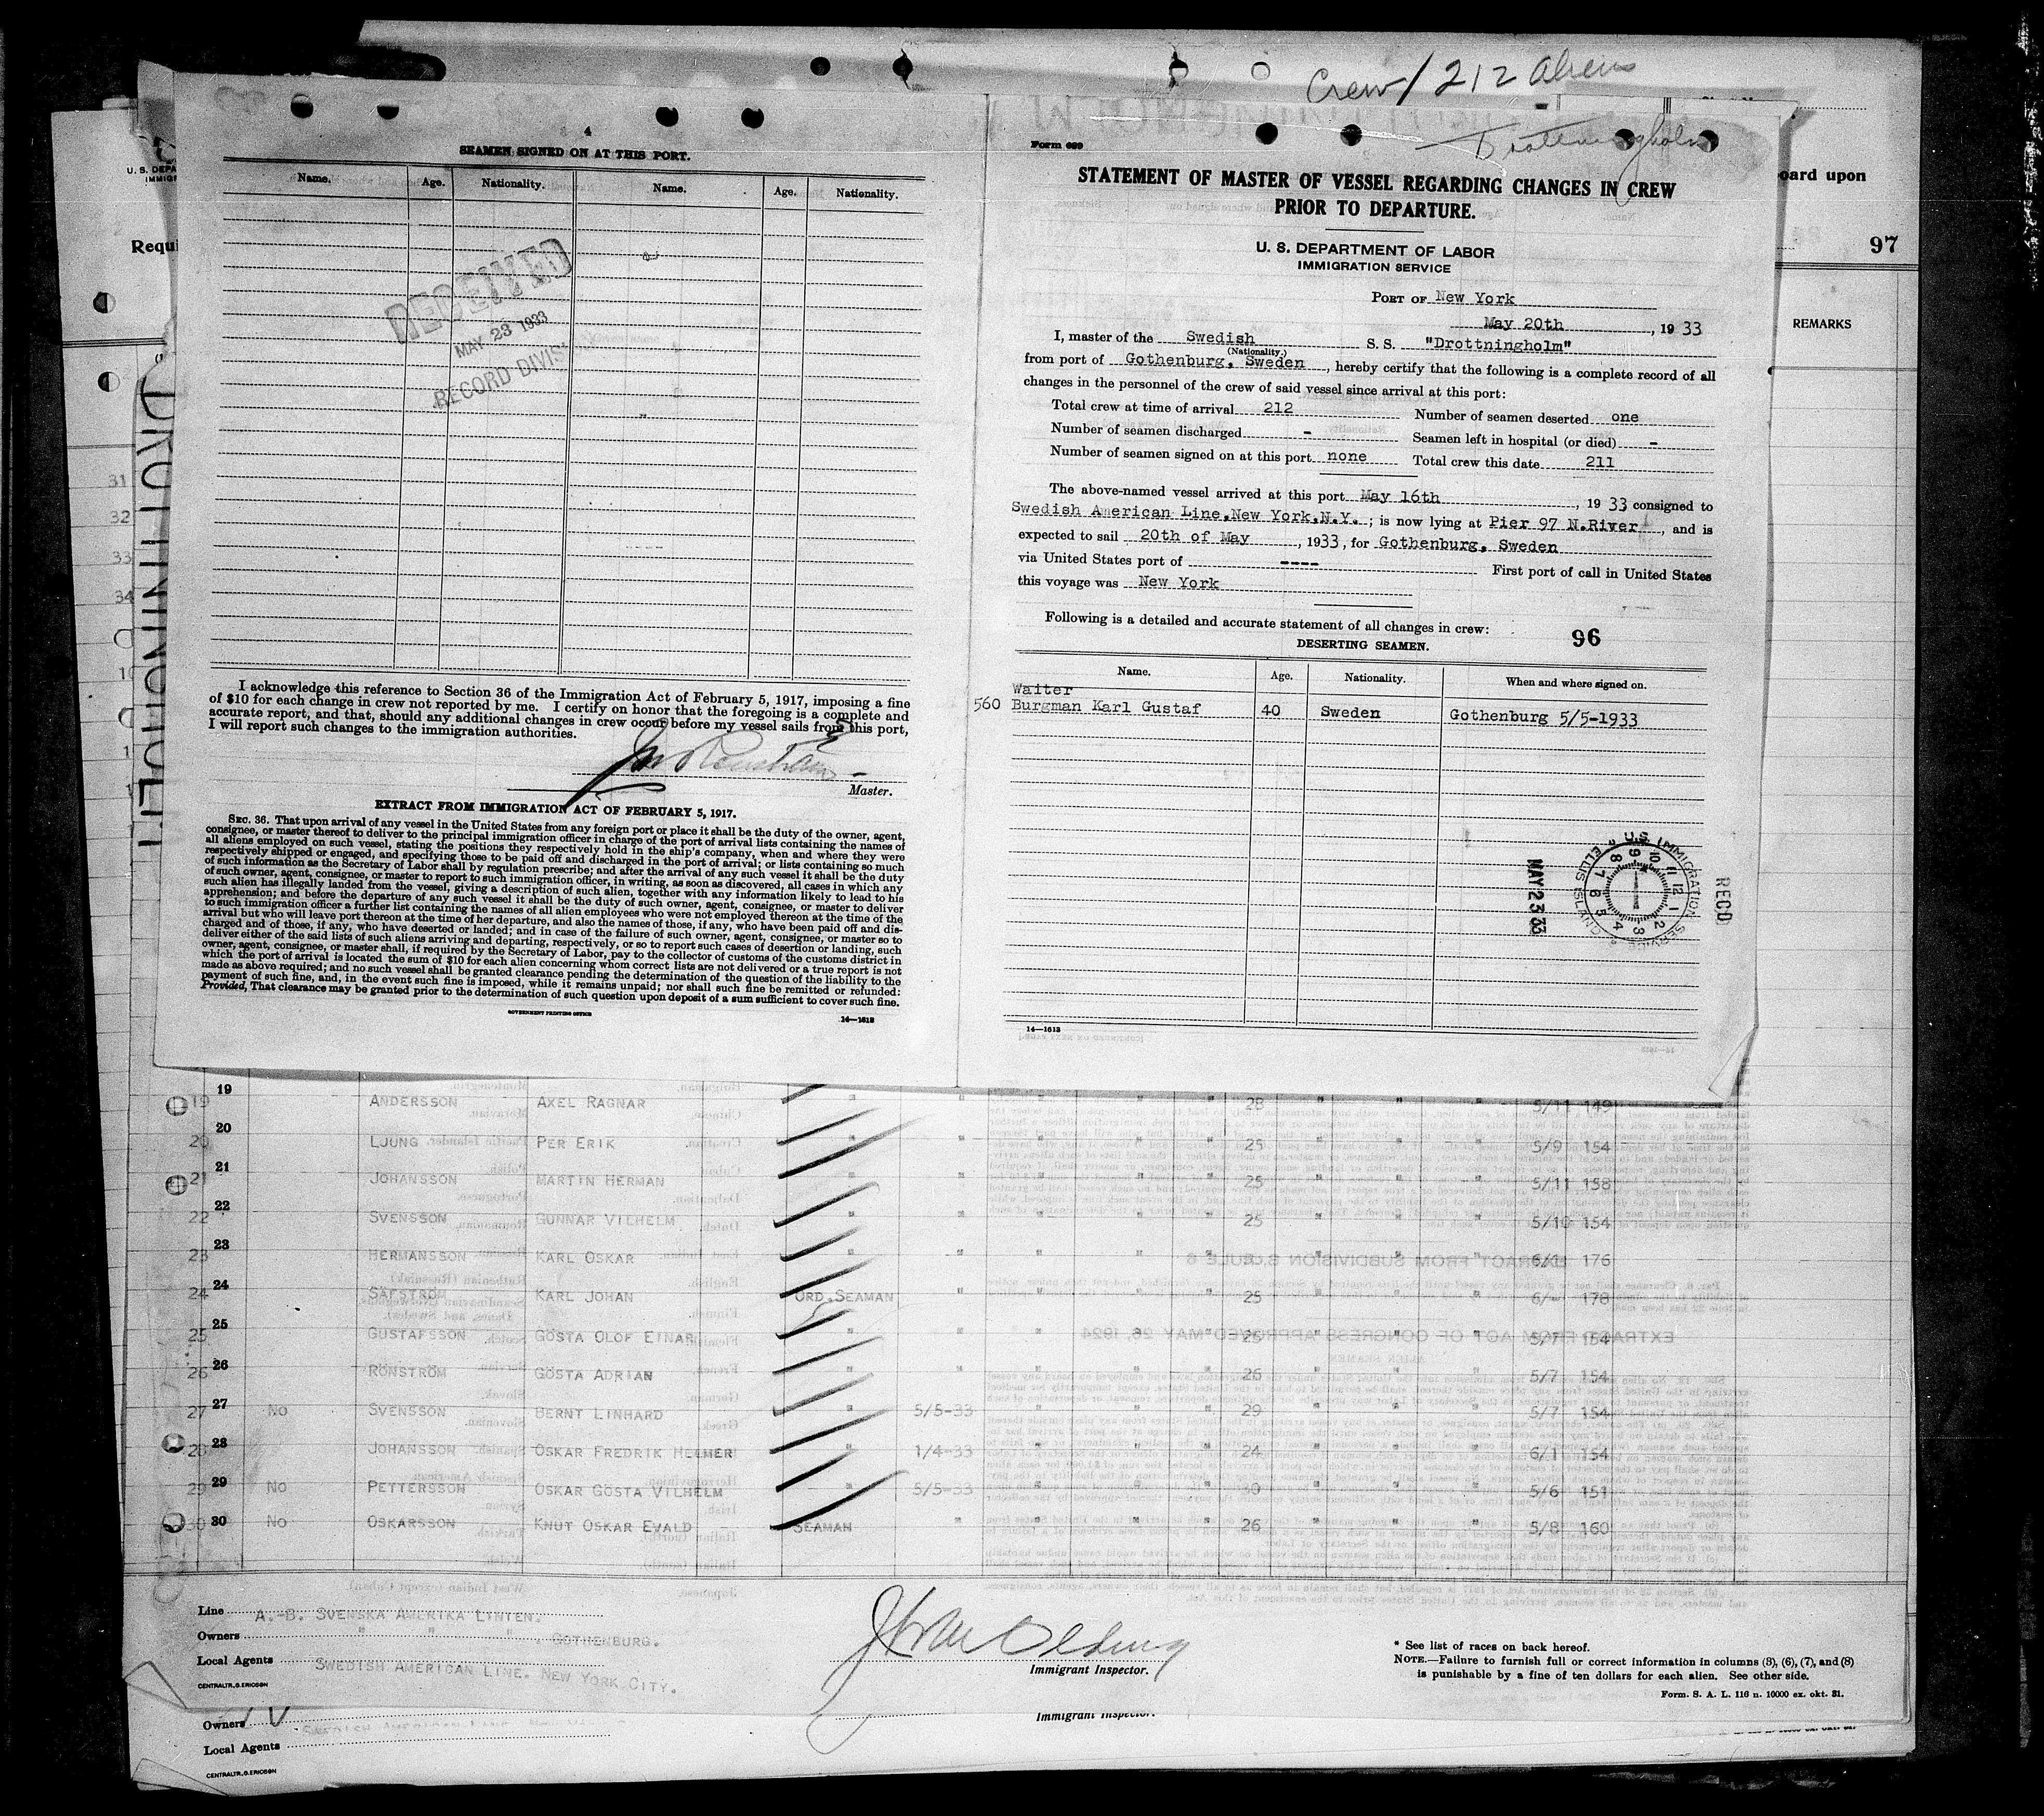 Crew / 212 Aliens
4
SEAMEN SIGNED ON AT THIS PORT.
Name. Age. Nationality. Name. Age. Nationality.
RECEIVED
MAY 23 1933
RECORD DIVIS
I acknowledge this reference to Section 36 of the Immigration Act of February 5, 1917, imposing a fine
of $10 for each change in crew not reported by me. I certify on honor that the foregoing is a complete and
accurate report, and that, should any additional changes in crew occur before my vessel sails from this port,
I will report such changes to the immigration authorities.
Master.
EXTRACT FROM IMMIGRATION ACT OF FEBRUARY 5, 1917.
SEC. 36. That upon arrival of any vessel in the United States from any foreign port or place it shall be the duty of the owner, agent,
consignee, or master thereof to deliver to the principal immigration officer in charge of the port of arrival lists containing the names of
all aliens employed on such vessel, stating the positions they respectively hold in the ship's company, when and where they were
respectively shipped or engaged, and specifying those to be paid off and discharged in the port of arrival; or lists containing so much
of such information as the Secretary of Labor shall by regulation prescribe; and after the arrival of any such vessel it shall be the duty
of such owner, agent, consignee, or master to report to such immigration officer, in writing, as soon as discovered, all cases in which any
such alien has illegally landed from the vessel, giving a description of such alien, together with any information likely to lead to his
apprehension; and before the departure of any such vessel it shall be the duty of such owner, agent, consignee, or master to deliver
to such immigration officer a further list containing the names of all alien employees who were not employed thereon at the time of the
arrival but who will leave port thereon at the time of her departure, and also the names of those, if any, who have been paid off and dis-
charged and of those, if any, who have deserted or landed; and in case of the failure of such owner, agent, consignee, or master so to
deliver either of the said lists of such aliens arriving and departing, respectively, or so to report such cases of desertion or landing, such
owner, agent, consignee, or master shall, if required by the Secretary of Labor, pay to the collector of customs of the customs district in
which the port of arrival is located the sum of $10 for each alien concerning whom correct lists are not delivered or a true report is not
made as above required; and no such vessel shall be granted clearance pending the determination of the question of the liability to the
payment of such fine, and, in the event such fine is imposed, while it remains unpaid; nor shall such fine be remitted or refunded:
Provided, That clearance may be granted prior to the determination of such question upon deposit of a sum sufficient to cover such fine.
GOVERNMENT PRINTING OFFICE
14—1613
Form 689
Drottningholm
STATEMENT OF MASTER OF VESSEL REGARDING CHANGES IN CREW
PRIOR TO DEPARTURE.
U. S. DEPARTMENT OF LABOR
IMMIGRATION SERVICE
PORT OF New York
May 20th, 1933
I, master of the Swedish S. S. "Drottningholm"
(Nationality.)
from port of Gothenburg, Sweden, hereby certify that the following is a complete record of all
changes in the personnel of the crew of said vessel since arrival at this port:
Total crew at time of arrival 212 Number of seamen deserted one
Number of seamen discharged - Seamen left in hospital (or died) -
Number of seamen signed on at this port none Total crew this date 211
The above-named vessel arrived at this port May 16th, 1933 consigned to
Swedish American Line, New York, N.Y.; is now lying at Pier 97 N.River, and is
expected to sail 20th of May, 1933, for Gothenburg, Sweden
via United States port of ---- First port of call in United States
this voyage was New York
Following is a detailed and accurate statement of all changes in crew:
96
DESERTING SEAMEN.
Name. Age. Nationality. When and where signed on.
Waiter
560 Burgman Karl Gustaf 40 Sweden Gothenburg 5/5-1933
U.S. IMMIGRATION SERVICE ELLIS ISLAND
MAY 23 33
REC'D
14—1613
U. S. DEPA
IMMIG
Requi
oard upon
97
REMARKS
DROTTNINGHOLM
31
32
33
34
19 19 ANDERSSON AXEL RAGNAR " " " " " 28 " " " 5/11 149
20 20 LJUNG PER ERIK " " " " " 25 " " " 5/9 154
21 21 JOHANSSON MARTIN HERMAN " " " " " 25 " " " 5/11 158
22 22 SVENSSON GUNNAR VILHELM " " " " " 25 " " " 5/10 154
23 23 HERMANSSON KARL OSKAR " " " " " " " " 6/1 176
24 24 SÄFSTRÖM KARL JOHAN ORD.SEAMAN " " " " 25 " " " 6/- 178
25 25 GUSTAFSSON GÖSTA OLOF EINAR " " " " " " " " 5/7 154
26 26 RÖNSTRÖM GÖSTA ADRIAN " " " " " 26 " " " 5/7 154
27 27 No SVENSSON BERNT LINHARD " 5/5-33 " " " 29 " " " 5/7 154
28 28 JOHANSSON OSKAR FREDRIK HELMER " 1/4-33 " " " 24 " " " 6/1 154
29 29 No PETTERSSON OSKAR GÖSTA VILHELM " 5/5-33 " " " 30 " " " 5/6 151
30 30 No OSKARSSON KNUT OSKAR EVALD SEAMAN " " " " 26 " " " 5/8 160
Line A.-B. SVENSKA AMERIKA LINIEN.
Owners " " " , GOTHENBURG.
Local Agents SWEDISH AMERICAN LINE. NEW YORK CITY.
CENTRALTR., G. ERICSON
Immigrant Inspector.
* See list of races on back hereof.
NOTE.—Failure to furnish full or correct information in columns (3), (6), (7), and (8)
is punishable by a fine of ten dollars for each alien. See other side.
Form. S. A. L. 116 n. 10000 ex. okt. 31.
Owners
Local Agents
CENTRALTR., G. ERICSON
Immigrant Inspector.